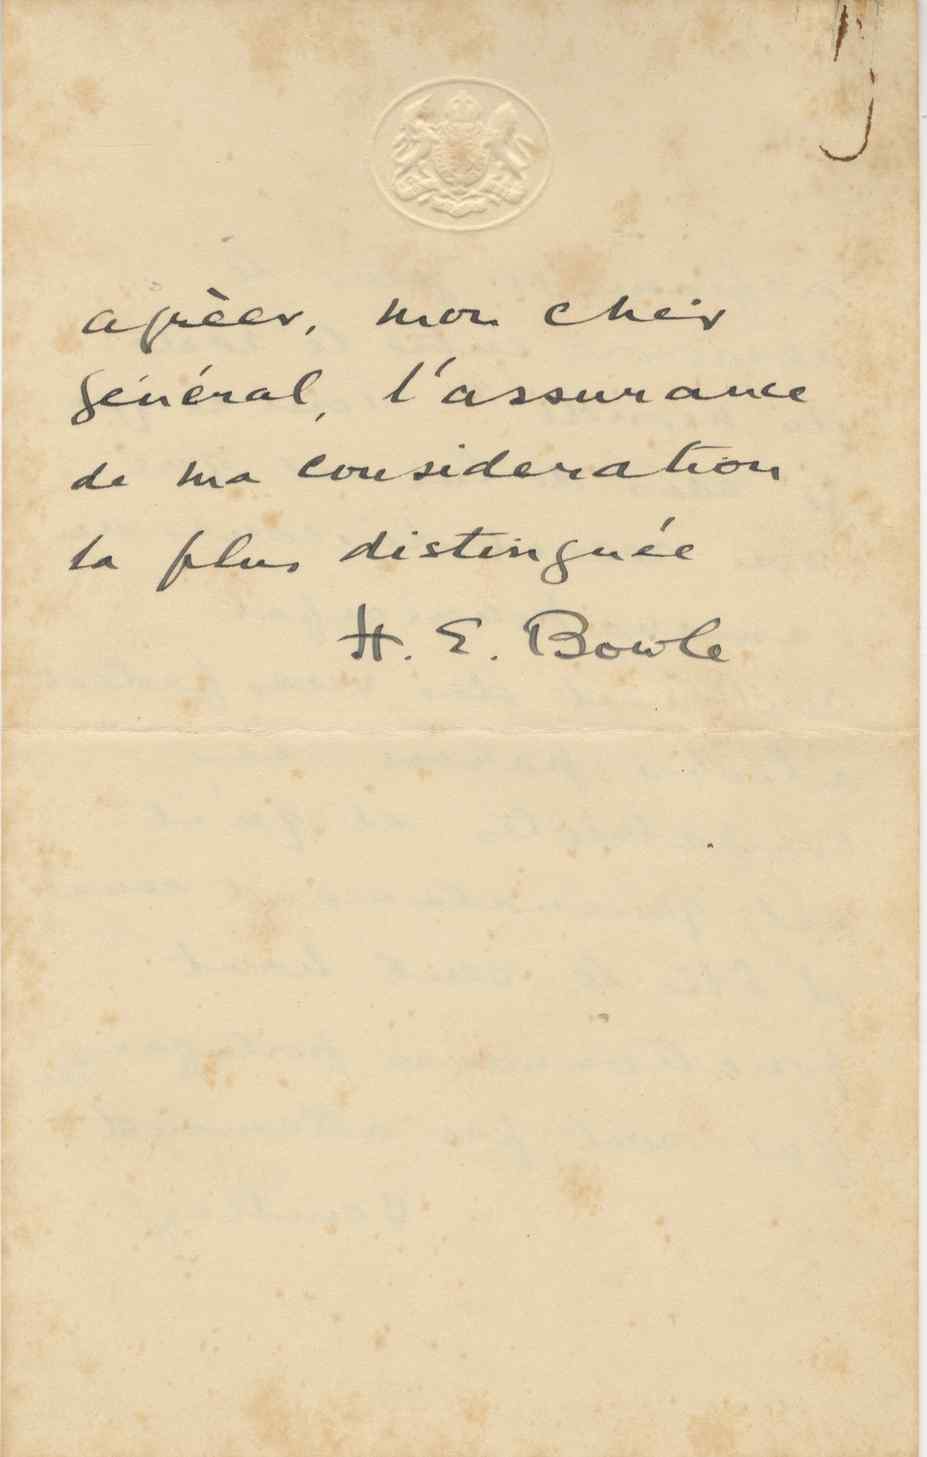 agrèer, mon cher
général, l'assurance
de ma consideration
la plus distinguée
H. E. Bowle